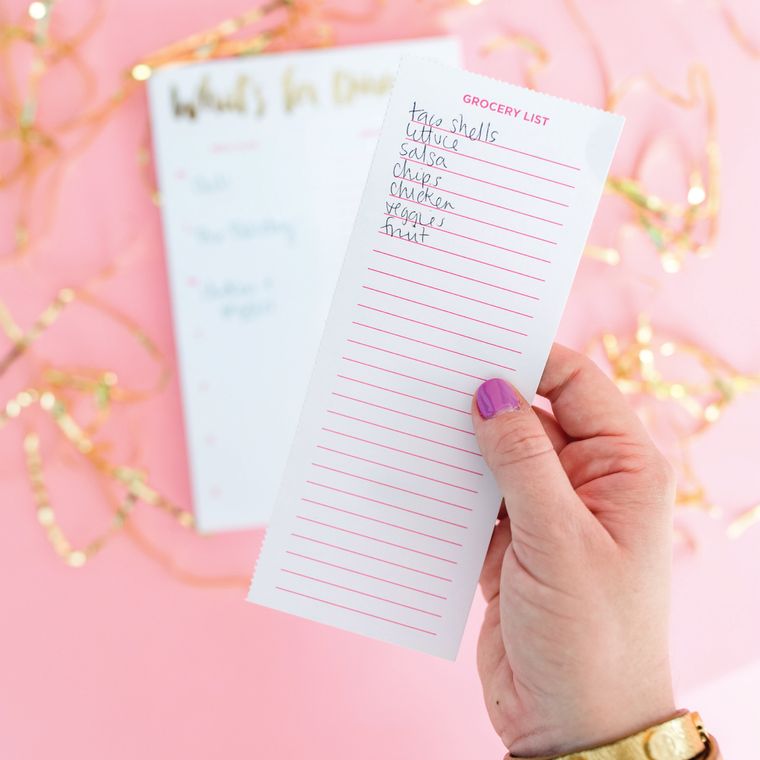 What's for Dinner
GROCERY LIST
taco shells
lettuce
salsa
chips
chicken
veggies
fruit